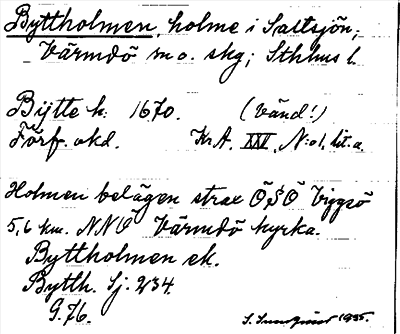 Byttholmen, holme i Saltsjön,
Värmdö sn o. skg; Sthlms l.
Bÿtte h: 1670. (Vänd!)
Förf. okd. Kr. A. XXV, N:o 1, lit. a.
Holmen belägen strax ÖSÖ Viggsö
5,6 km. NNV Värmdö kyrka.
Byttholmen ek.
Bytth. Sj. 234.
G. 76.
S. 1935.